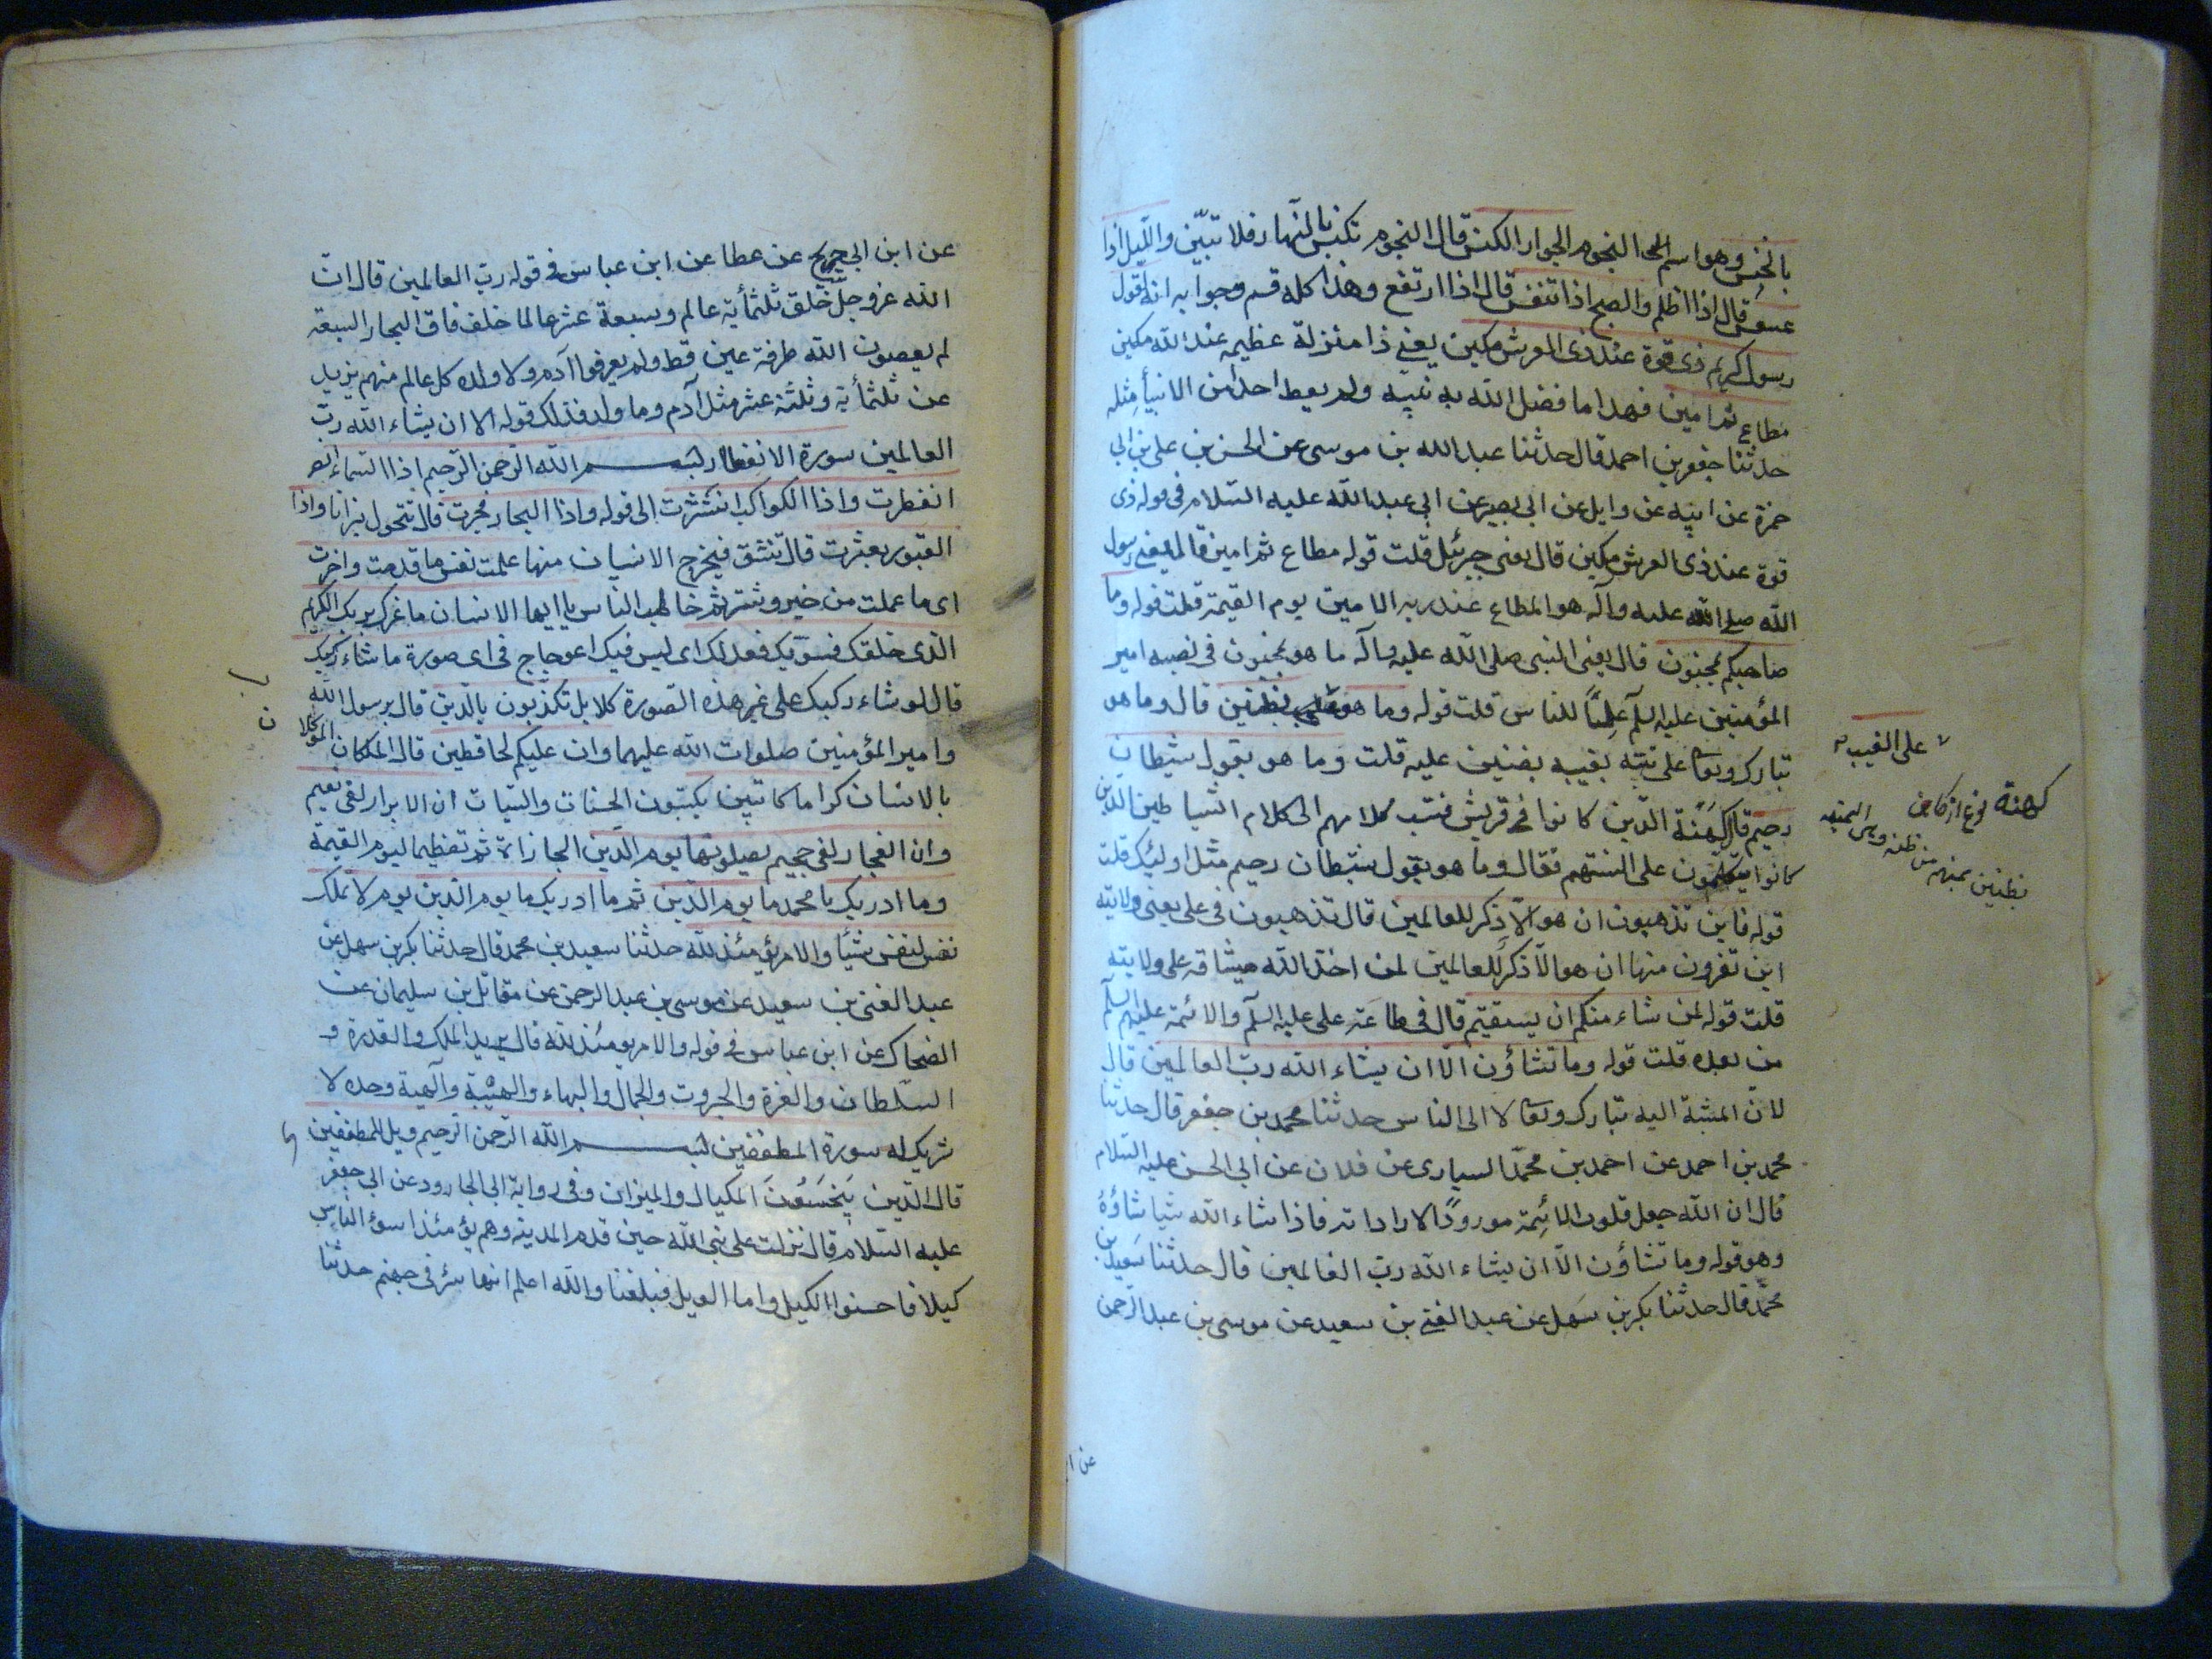 بالخنس وهو اسم النجوم الجوار الكنس قال النجوم تكنس بالنهار فلا تبين والليل اذا
عسعس قال اذا اظلم والصبح اذا تنفس قال اذا ارتفع وهذا كله قسم وجوابه انه لقول
رسول كريم ذى قوة عند ذى العرش مكين يعنى ذا منزلة عظيمة عند الله مكين
مطاع ثم امين فهذا ما فضل الله به نبيه ولم يعط احدا من الانبيأ مثله
حدثنا جعفر بن احمد قال حدثنا عبد الله بن موسى عن الحسن بن على بن ابى
حمزة عن ابيه عن وايل عن ابى بصير عن ابى عبد الله عليه السلام فى قوله ذى
قوة عند ذى العرش مكين قال يعنى جبرئيل قلت قوله مطاع ثم امين قال يعنى رسول
الله صلى الله عليه وآله هو المطاع عند ربه الامين يوم القيمة قلت قوله وما
صاحبكم بمجنون قال يعنى النبى صلى الله عليه وآله ما هو بمجنون فى نصبه امير
المؤمنين عليه السلم علما للناس قلت قوله وما هو على بظنين قال وما هو
على الغيب
تبارك وتعا على نبيه بغيبه بضنين عليه قلت وما هو بقول شيطان
رجيم قال كهنة الذين كانوا فى قريش فنسب كلامهم الى كلام الشياطين الذين
كهنة
كانوا يتكلمون على السنتهم فقال وما هو بقول شيطان رجيم مثل اولئك قلت
بظنين
قوله فاين تذهبون ان هو الا ذكر للعالمين قال تذهبون فى على يعنى ولايته
اين تفرون منها ان هو الا ذكر للعالمين لمن اخذ الله ميثاقه على ولايته
قلت قوله لمن شاء منكم ان يستقيم قال فى طاعة على عليه السلم والائمة عليهم السلم
من بعده قلت قوله وما تشاؤن الا ان يشاء الله رب العالمين قال
لان المشية اليه تبارك وتعا لا الى الناس حدثنا محمد بن جعفر قال حدثنا
محمد بن احمد عن احمد بن محمد السيارى عن فلان عن ابى الحسن عليه السلام
قال ان الله جعل قلوب الائمة موردا لارادته فاذا شاء الله شيا شاؤه
وهو قوله وما تشاؤن الا ان يشاء الله رب العالمين قال حدثنا سعيد بن
محمد قال حدثنا بكر بن سهل عن عبد الغنى بن سعيد عن موسى بن عبد الرحمن
عن ا
عن ابن ابى جريح عن عطا عن ابن عباس فى قوله رب العالمين قال ان
الله عز وجل خلق ثلثمأية عالم وبسعة عشر عالما خلف قاف البحار السبعة
لم يعصون الله طرفة عين قط ولم يعرفوا آدم ولا ولده كل عالم منهم يزيد
عن ثلثمأية وثلثة عشر مثل آدم وما ولد فذلك قوله الا ان يشاء الله رب
العالمين سورة الانفطار بسم الله الرحمن الرحيم اذا السماء
انفطرت واذا الكواكب انتثرت الى قوله واذا البحار فجرت قال تتحول نيرانا واذا
القبور بعثرت قال تنشق فيخرج الانسان منها علمت نفس ما قدمت واخرت
اى ما عملت من خير وشر ثم خاطب الناس يا ايها الانسان ما غرك بربك الكريم
الذى خلقك فسويك فعدلك اى ليس فيك اعوجاج فى اى صورة ما شاء ركبك
قال لو شاء ركبك على غير هذه الصورة كلا بل تكذبون بالدين قال برسول الله
وامير المؤمنين صلوات الله عليهما وان عليكم لحافظين قال الملكان الموكلا
ن
بالانسان كراما كاتبين يكتبون الحسنات والسيات ان الابرار لفى نعيم
وان الفجار لفى جحيم يصلونها يوم الدين المجازاة ثم تعظيما ليوم القيمة
وما ادريك يا محمد ما يوم الدين ثم ما ادريك ما يوم الدين يوم لا تملك
نفس لنفس شيئا والامر يومئذ لله حدثنا سعيد بن محمد قال حدثنا بكر بن سهل عن
عبد الغنى بن سعيد عن موسى بن عبد الرحمن عن مقاتل بن سليمان عن
الضحاك عن ابن عباس فى قوله والامر يومئذ لله قال يريد الملك والقدرة و
السلطان والعزة والجبروت والجمال والبهاء والهيبة وآلهية وحده لا
شريك له سورة المطففين بسم الله الرحمن الرحيم ويل للمطففين
قال الذين يبخسون المكيال والميزان وفى رواية ابى الجارود عن ابى جعفر
عليه السلام قال نزلت على نبى الله حين قدم المدينة وهم يومئذ اسوء الناس
كيلا فاحسنوا الكيل واما الويل فبلغنا والله اعلم انها بئر فى جهنم حدثنا